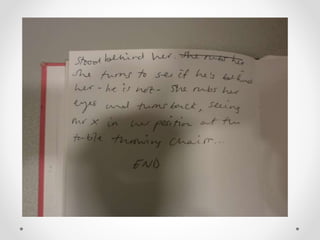 stood behind her. She rubs her
she turns to see if he's behind
her - he is not - she rubs her
eyes and turns back, seeing
mr X in her position at the
table throwing chair...
END